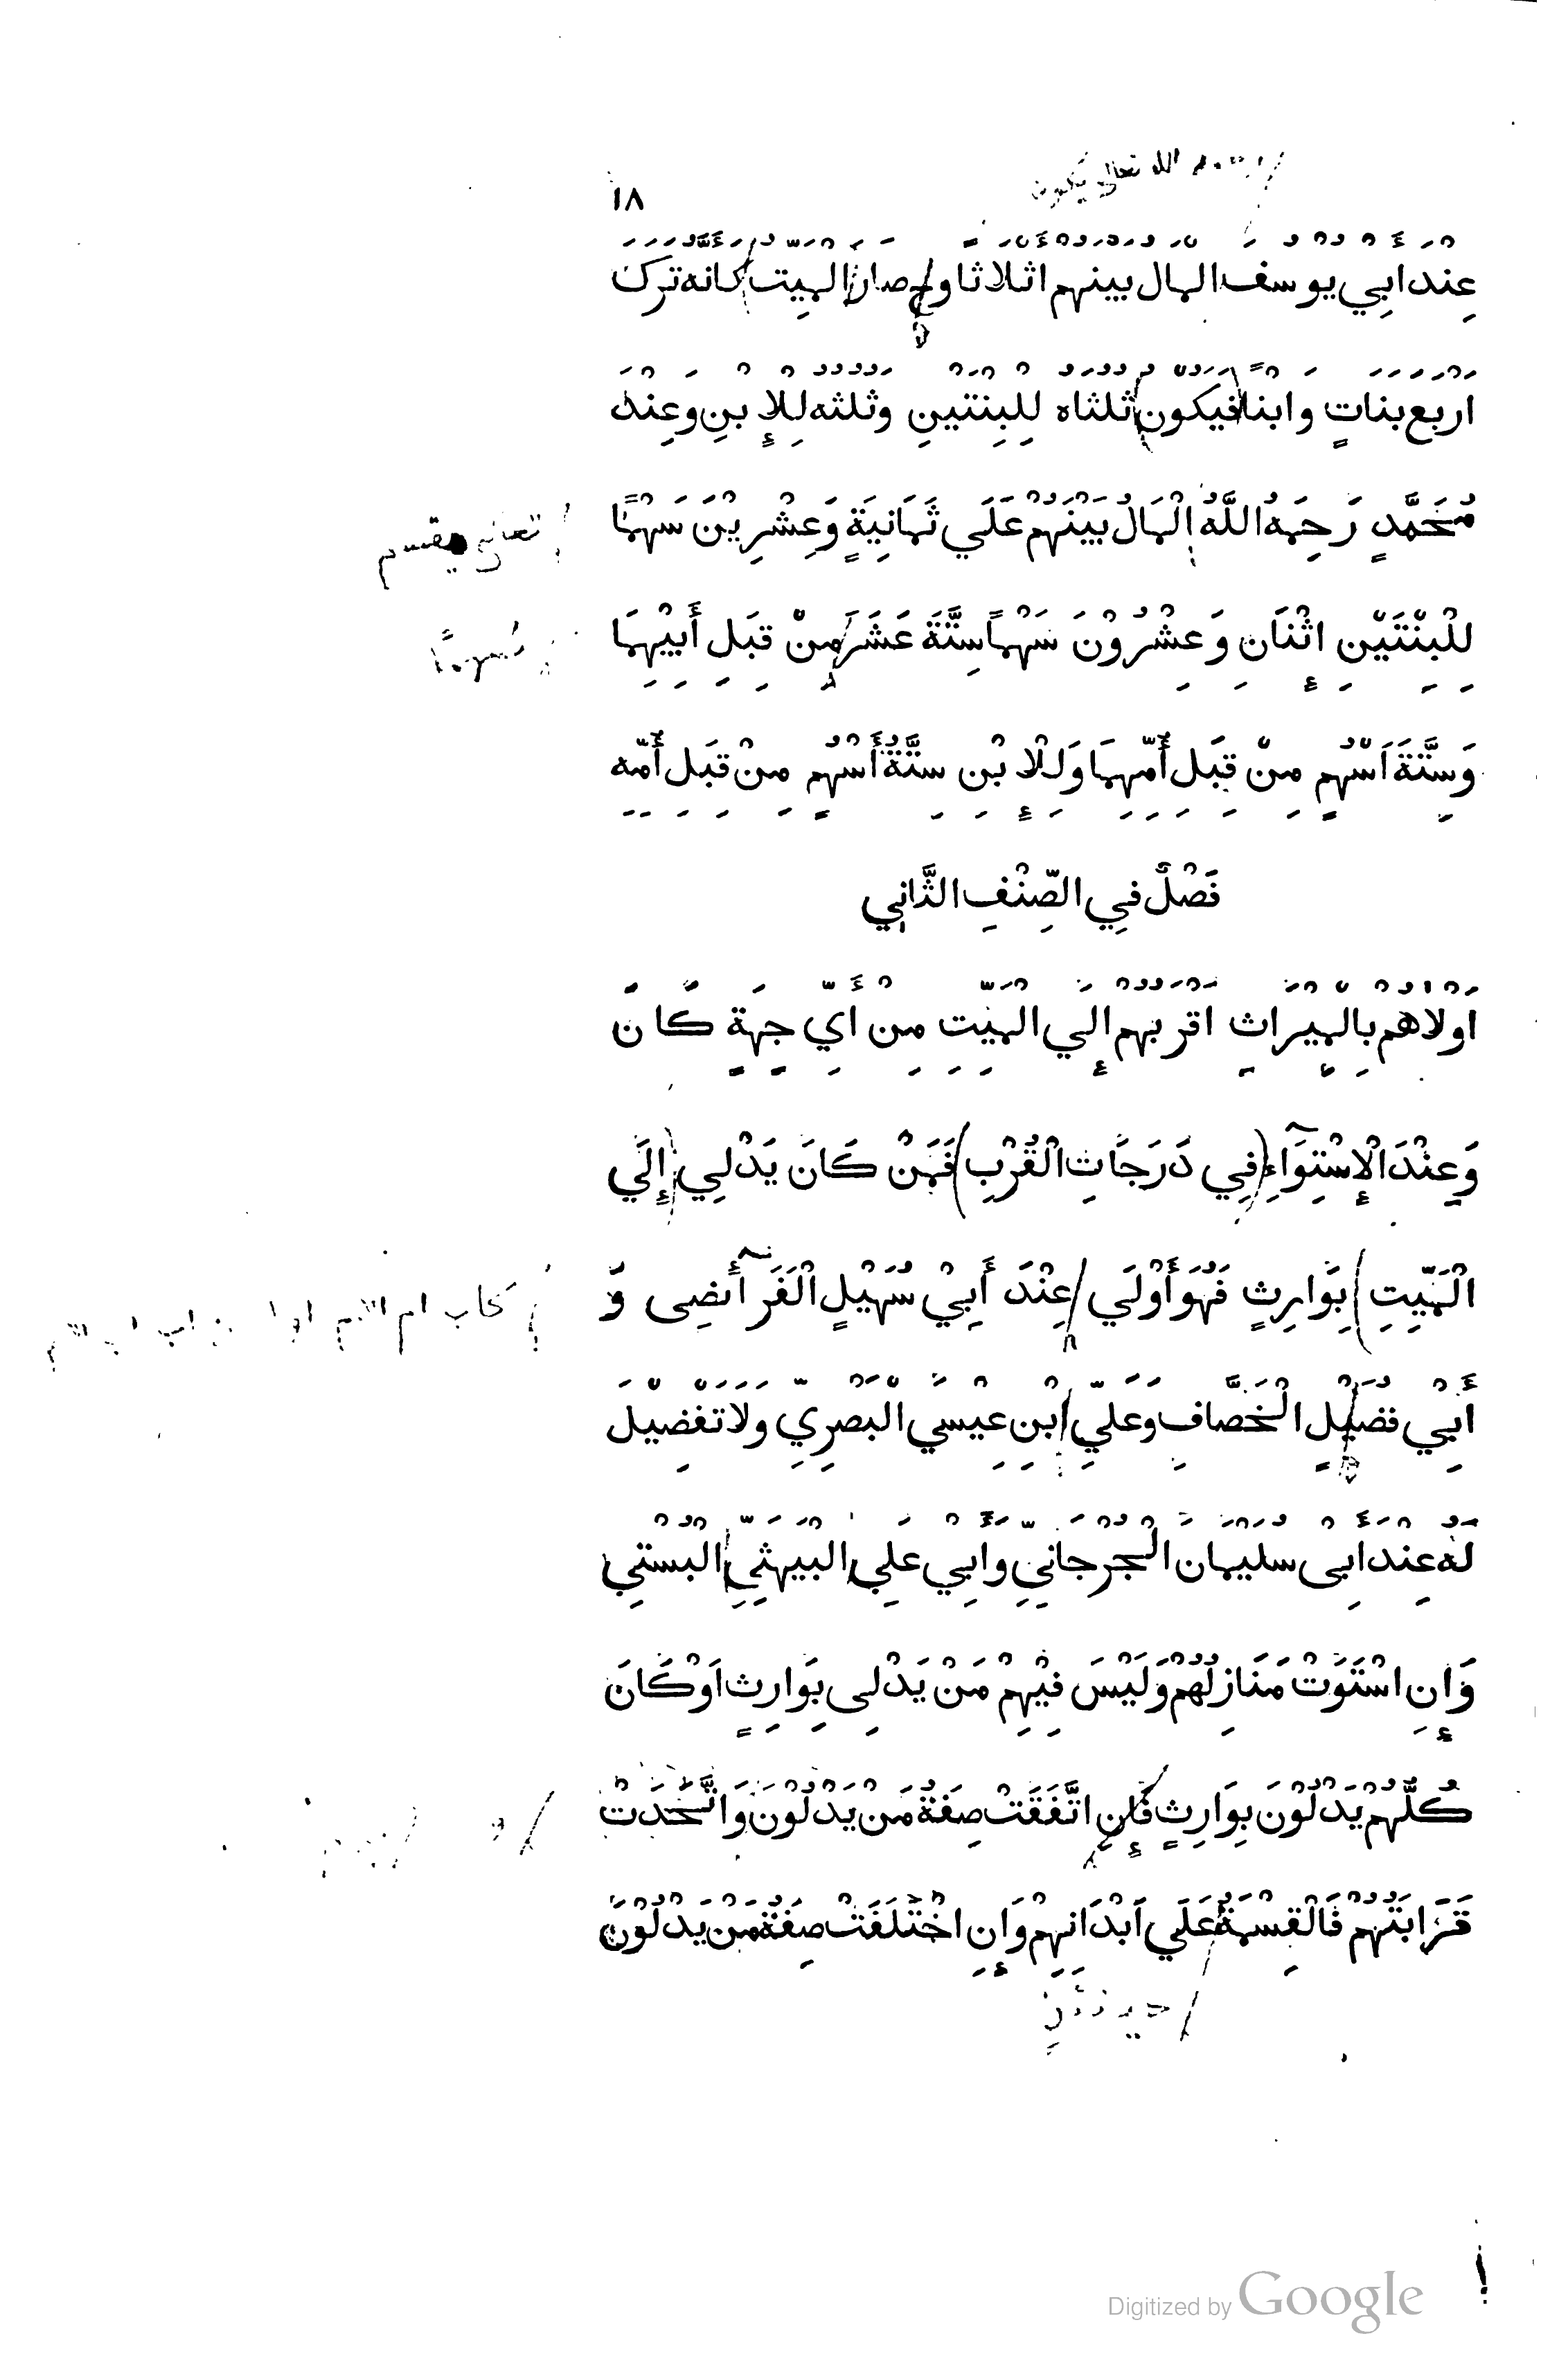 الله تعالى يكون
١٨
عِنْدَ أَبِي يُوْسُفَ الْمَالُ بَيْنَهُمْ أَثْلَاثًا وَصَارَ الْمَيِّتُ كَأَنَّهُ تَرَكَ
أَرْبَعَ بَنَاتٍ وَابْنًا فَيَكُوْنُ ثُلُثَاهُ لِلْبِنْتَيْنِ وَثُلُثُهُ لِلْإِبْنِ وَعِنْدَ
مُحَمَّدٍ رَحِمَهُ اللَّهُ الْمَالُ بَيْنَهُمْ عَلَي ثَمَانِيَةٍ وَعِشْرِيْنَ سَهْمًا
تعالى يقسم
لِلْبِنْتَيْنِ إِثْنَانِ وَعِشْرُوْنَ سَهْمًا سِتَّةَ عَشَرَ مِنْ قِبَلِ أَبِيْهِمَا
سهمًا
وَسِتَّةَ اَسْهُمٍ مِنْ قِبَلِ أُمِّهِمَا وَلِلْإِبْنِ سِتَّةُ أَسْهُمٍ مِنْ قِبَلِ أُمِّهِ
فَصْلٌ فِي الصِّنْفِ الثَّانِي
اَوْلَاهُمْ بِالْمِيْرَاثِ اَقْرَبُهُمْ إِلَي الْمَيِّتِ مِنْ اَيِّ جِهَةٍ كَانَ
وَعِنْدَ الْإِسْتِوَآءِ فِي دَرَجَاتِ الْقُرْبِ فَمَنْ كَانَ يَدْلِي إِلَي
الْمَيِّتِ بِوَارِثٍ فَهُوَ أَوْلَي عِنْدَ أَبِيْ سُهَيْلٍ الْفَرَآئضِى وَ
كاب ام الام اب
أَبِيْ فُضَيْلٍ الْخَصَّافِ وَعَلِيِّ ابْنِ عِيْسَي الْبَصْرِيِ وَلَا تَفْضِيْلَ
لَهُ عِنْدَ أَبِى سُلَيْمَانَ الْجُرْجَانِيِ وَأَبِي عَلِيِ الْبَيْهَثِيِ الْبُسْتِي
وَإِنِ اسْتَوَتْ مَنَازِلُهُمْ وَلَيْسَ فِيْهِمْ مَنْ يَدْلِى بِوَارِثٍ اَوْ كَانَ
كُلُّهُمْ يَدْلُوْنَ بِوَارِثٍ فَإِنِ اتَّفَقَتْ صِفَةُ مَنْ يَدْلُوْنَ وَاتَّحَدَتْ
قَرَابَتُهُمْ فَالْقِسْمَةُ عَلَي اَبْدَانِهِمْ وَإِنِ اخْتَلَفَتْ صِفَةُ مَنْ يَدْلُوْنَ
Digitized by Google